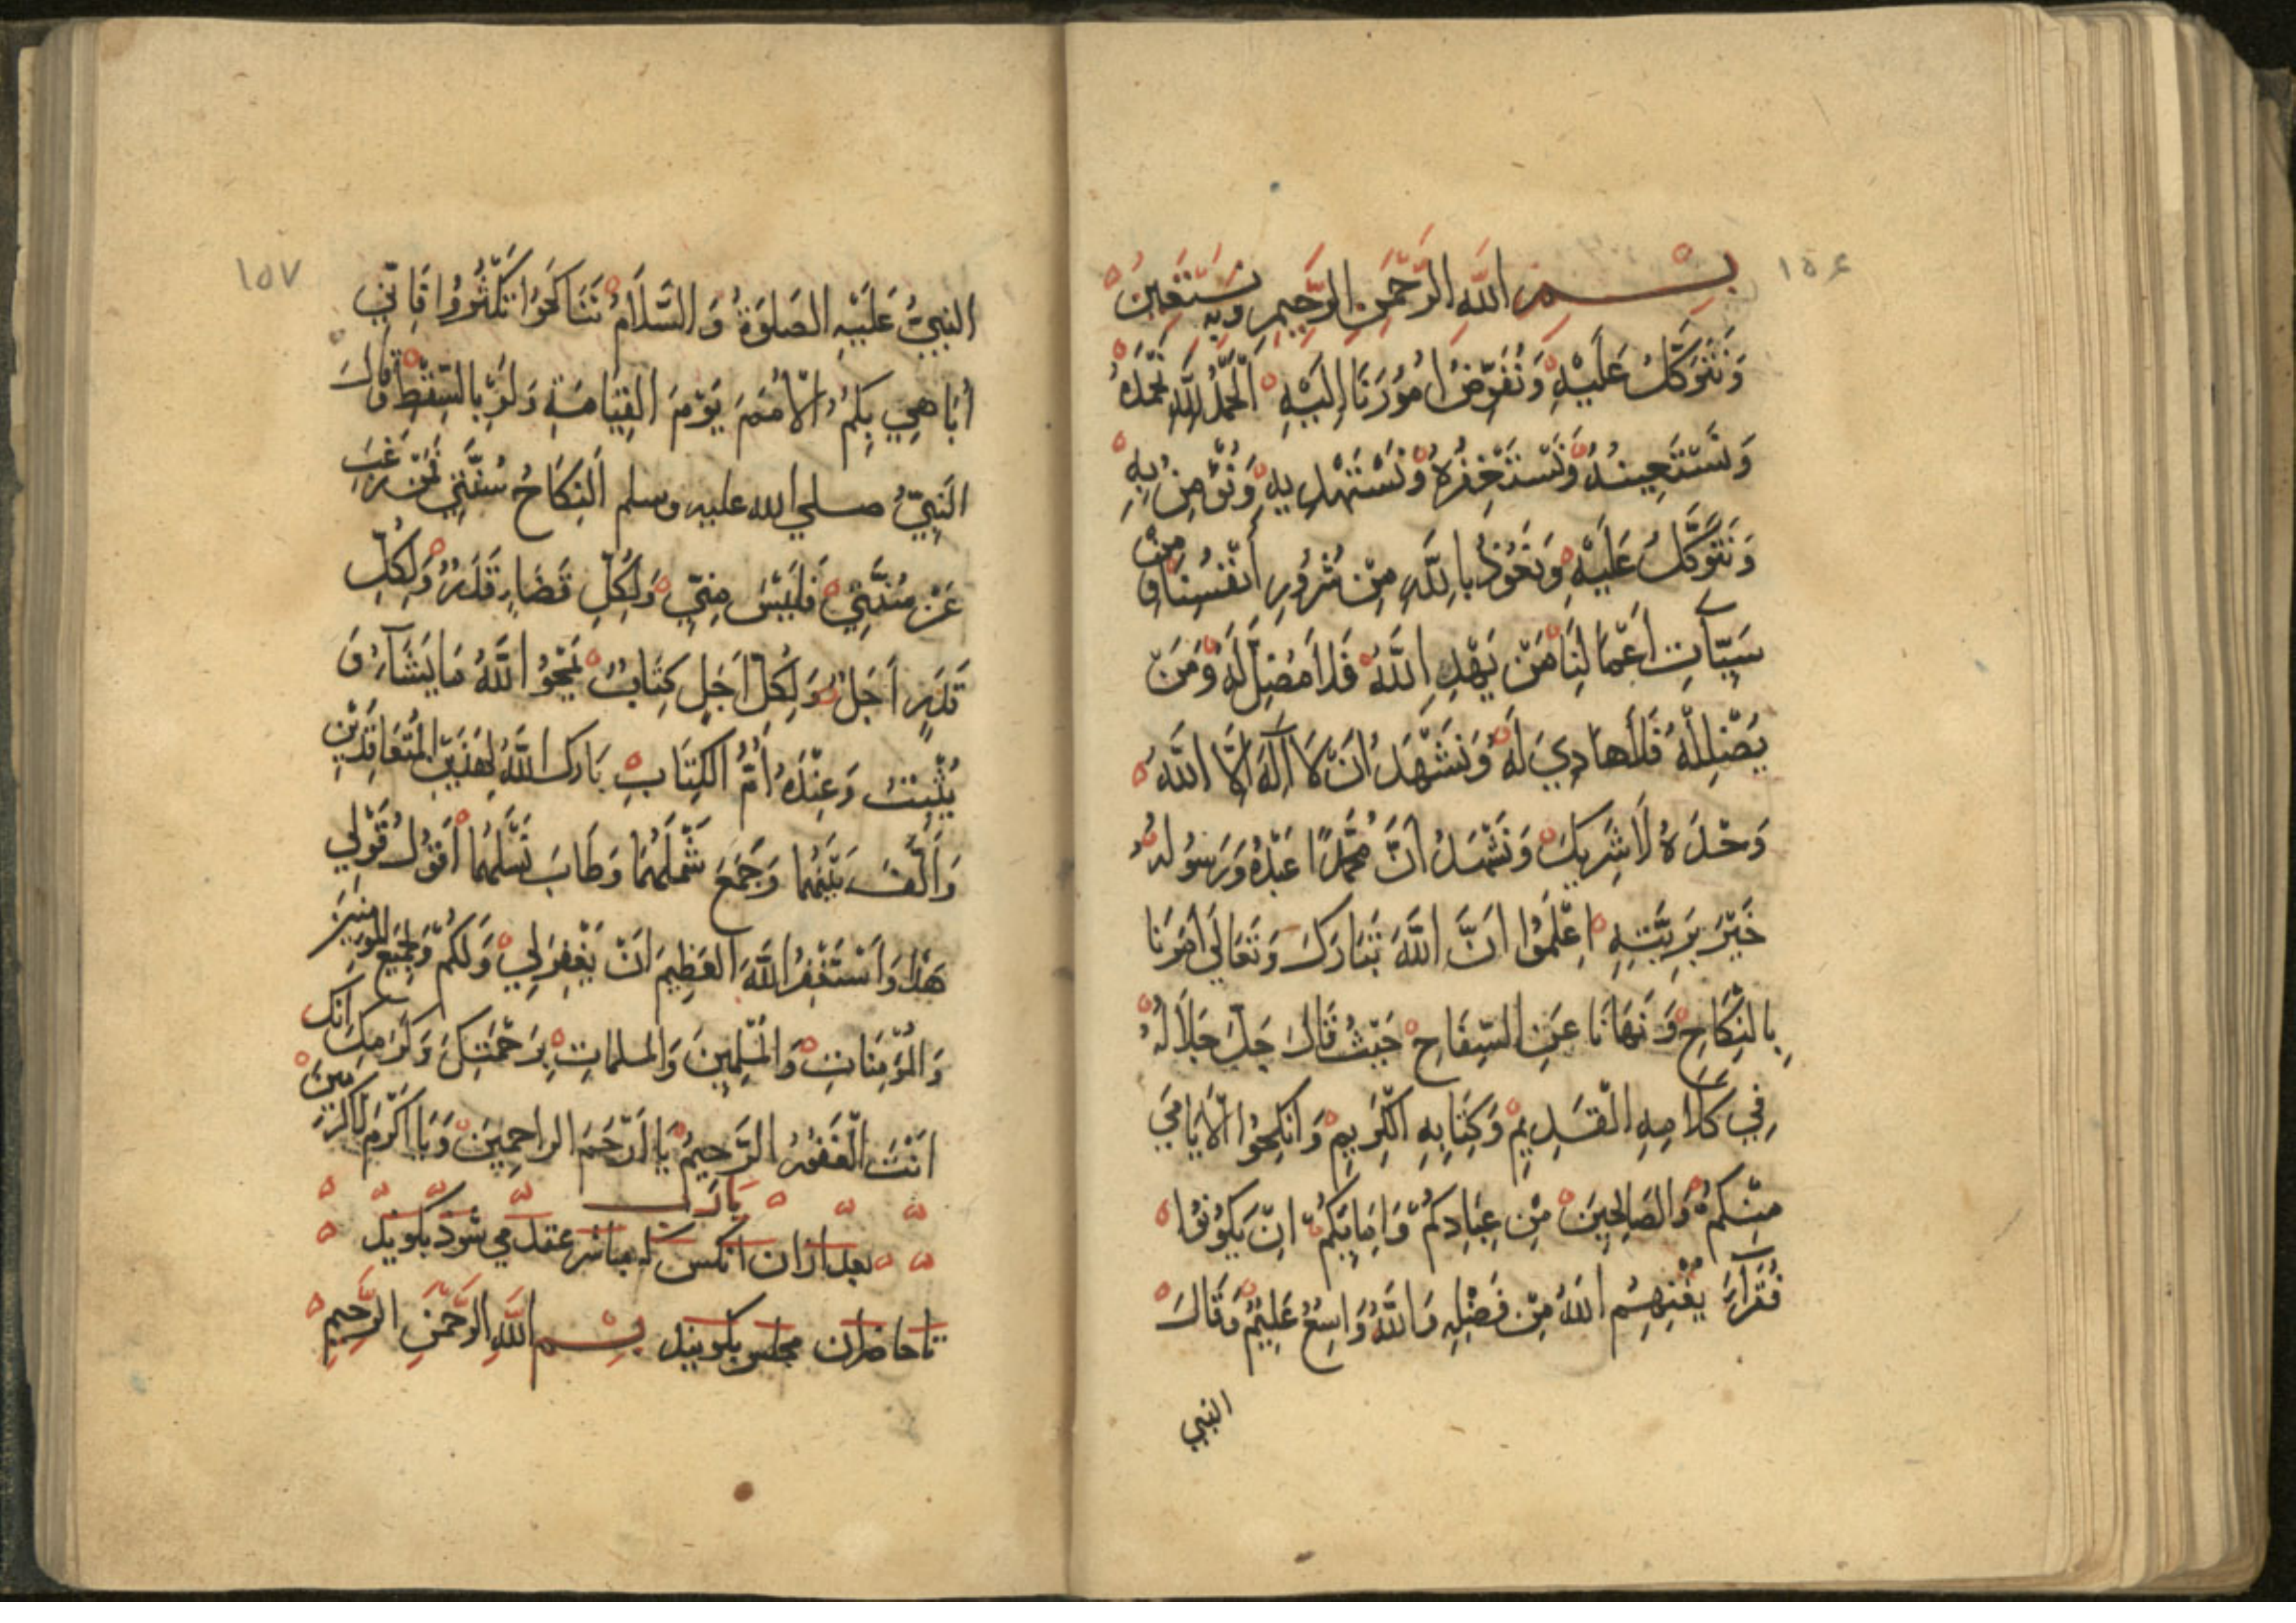 ١٥٤
بِسْمِ اللَّهِ الرَّحْمَنِ الرَّحِيمِ وَبِهِ نَسْتَعِينُ
وَنَتَوَكَّلُ عَلَيْهِ وَنُفَوِّضُ اُمُوْرَنَا اِلَيْهِ اَلْحَمْدُ لِلَّهِ نَحْمَدُهُ
وَنَسْتَعِينُهُ وَنَسْتَغْفِرُهُ وَنَسْتَهْدِيهِ وَنُؤْمِنُ بِهِ
وَنَتَوَكَّلُ عَلَيْهِ وَنَعُوْذُ بِاللَّهِ مِنْ شُرُوْرِ أَنْفُسِنَا وَمِنْ
سَيِّآتِ اَعْمَالِنَا مَنْ يَهْدِ اللَّهُ فَلَا مُضِلَّ لَهُ وَمَنْ
يُضْلِلْهُ فَلَا هَادِيَ لَهُ وَنَشْهَدُ اَنْ لَا اِلَهَ اِلَّا اللَّهُ
وَحْدَهُ لَا شَرِيكَ وَنَشْهَدُ اَنَّ مُحَمَّدًا عَبْدُهُ وَرَسُولُهُ
خَيْرَ بَرِيَّتِهِ اِعْلَمُوْا اَنَّ اللَّهَ تَبَارَكَ وَتَعَالَي اَمَرَنَا
بِالنِّكَاحِ وَنَهَانَا عَنِ السِّفَاحِ حَيْثُ قَالَ جَلَّ جَلَالُهُ
فِي كَلَامِهِ الْقَدِيمِ وَكِتَابِهِ الْكَرِيمِ وَاَنْكِحُوا الْاَيَامَي
مِنْكُمْ وَالصَّالِحِينَ مِنْ عِبَادِكُمْ وَاِمَايِكُمْ اِنْ يَكُوْنُوا
فُقَرَآءَ يُغْنِهِمُ اللَّهُ مِنْ فَضْلِهِ وَاللَّهُ وَاسِعٌ عَلِيمٌ وَقَالَ
النبي
١٥٧
النَّبِيُّ عَلَيْهِ الصَلوَةُ وَالسَّلَامُ تَنَاكَحُوْا تَكْثُرُوا فَاِنِّي
اُبَاهِي بِكُمُ الْاُمَمَ يَوْمَ الْقِيَامَةِ وَلَوْ بِالسِّقْطِ وَقَالَ
النَّبِيُّ صلي الله عليه وسلم اَلنِّكَاحُ سُنَّتِي فَمَنْ رَغِبَ
عَنْ سُنَّتِيْ فَلَيْسَ مِنِّي وَلِكُلِّ قَضَاءٍ قَدَرٌ وَلِكُلِّ
قَدَرٍ اَجَلٌ وَلِكُلِّ اَجَلٍ كِتَابٌ يَمْحُو اللَّهُ مَا يَشَآءُ وَ
يُثْبِتُ وَعِنْدَهُ اُمُّ الْكِتَابِ بَارَكَ اللَّهُ لِهَذَيْنِ الْمُتَعَاقِدَيْنِ
وَاَلَّفَ بَيْنَهُمَا وَجَمَعَ شَمْلَهُمَا وَطَابَ نَسْلَهُمَا اَقُوْلُ قَوْلِي
هَذَا وَاَسْتَغْفِرُ اللَّهَ الْعَظِيمَ اَنْ يَغْفِرَ لِي وَلَكُمْ وَلِجَمِيعِ الْمُؤْمِنِينَ
وَالْمُؤْمِنَاتِ وَالْمُسْلِمِينَ وَالمسلماتِ بِرَحْمَتِكَ وَكَرَمِكَ اِنَّكَ
اَنْتَ الْغَفُوْرُ الرَّحِيمُ يَا اَرْحَمَ الراحِمِينَ وَيَا اَكْرَمَ الْاَكْرَمِينَ
بعد ازان انکس که مباشر عقد می شود بکوید
تا حاضران مجلس بکویند بِسْمِ اللَّهِ الرَّحْمَنِ الرَّحِيمِ